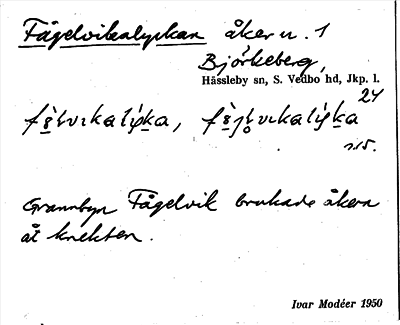 Fågelvikalyckan åker u. 1
Björkeberg,
Hässleby sn, S. Vedbo hd, Jkp. l.
24
s.15.
Grannbyn Fågelvik brukade åkern
åt knekten.
Ivar Modéer 1950